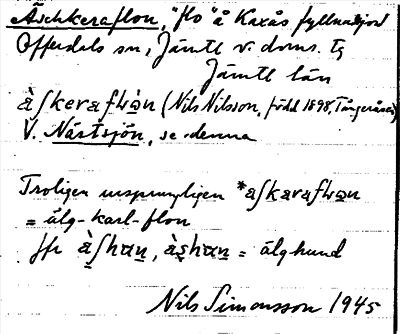 Äschkeraflon, "flo" å Kaxås fyllnadsjord
Offerdals sn, Jämtl. v. doms. tg
Jämtl län
àʃkerafɯ̀ən (Nils Nilsson, född 1898, Tångeråsen)
V. Nästsjön, se denna
Troligen ursprungligen *aʃkarafɯən
= älg-karl-flon
Jfr àʃhan, àʂhan = älghund
Nils Simonsson 1945